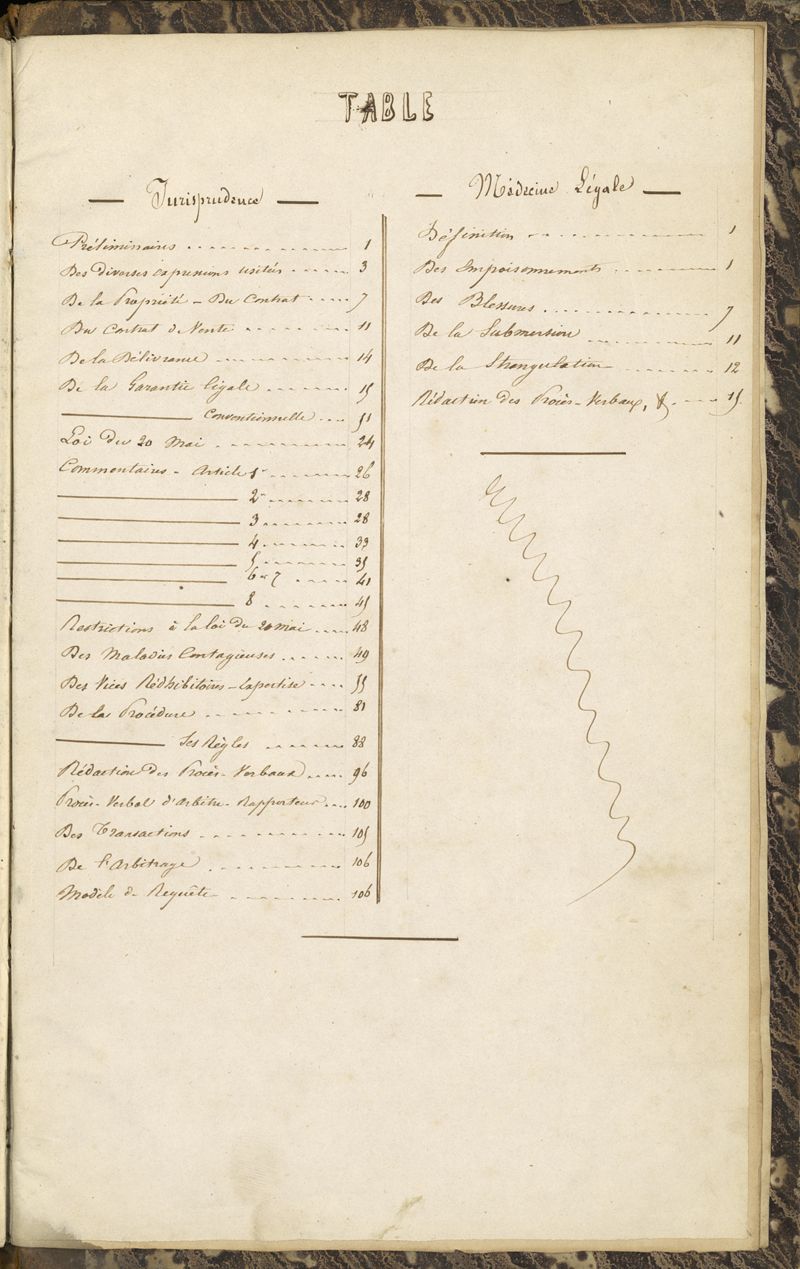 TABLE
Jurisprudence
Préliminaires 1
Des diverses expressions usitées 3
De la Propriété - Du Contrat 7
Du Contrat de Vente 11
De la Délivrance 14
De la Garantie légale 15
Conventionnelle 51
Loi du 20 Mai 24
Commentaires - Article 1er 26
2 28
3 28
4 33
5 35
6 et 7 41
8 45
Restrictions à la loi du 20 mai 48
Des Maladies Contagieuses 49
Des Vices Rédhibitoires - Expertise 55
De la Procédure 81
Ses Règles 88
Rédaction des Procès-Verbaux 96
Procès-Verbal d'Arbitre-Rapporteur 100
Des Transactions 105
De l'Arbitrage 106
Modèle de Requête 106
Médecine Légale
Définition 1
Des Empoisonnements 1
Des Blessures 7
De la Submersion 11
De la Strangulation 12
Rédaction des Procès-Verbaux, & 15